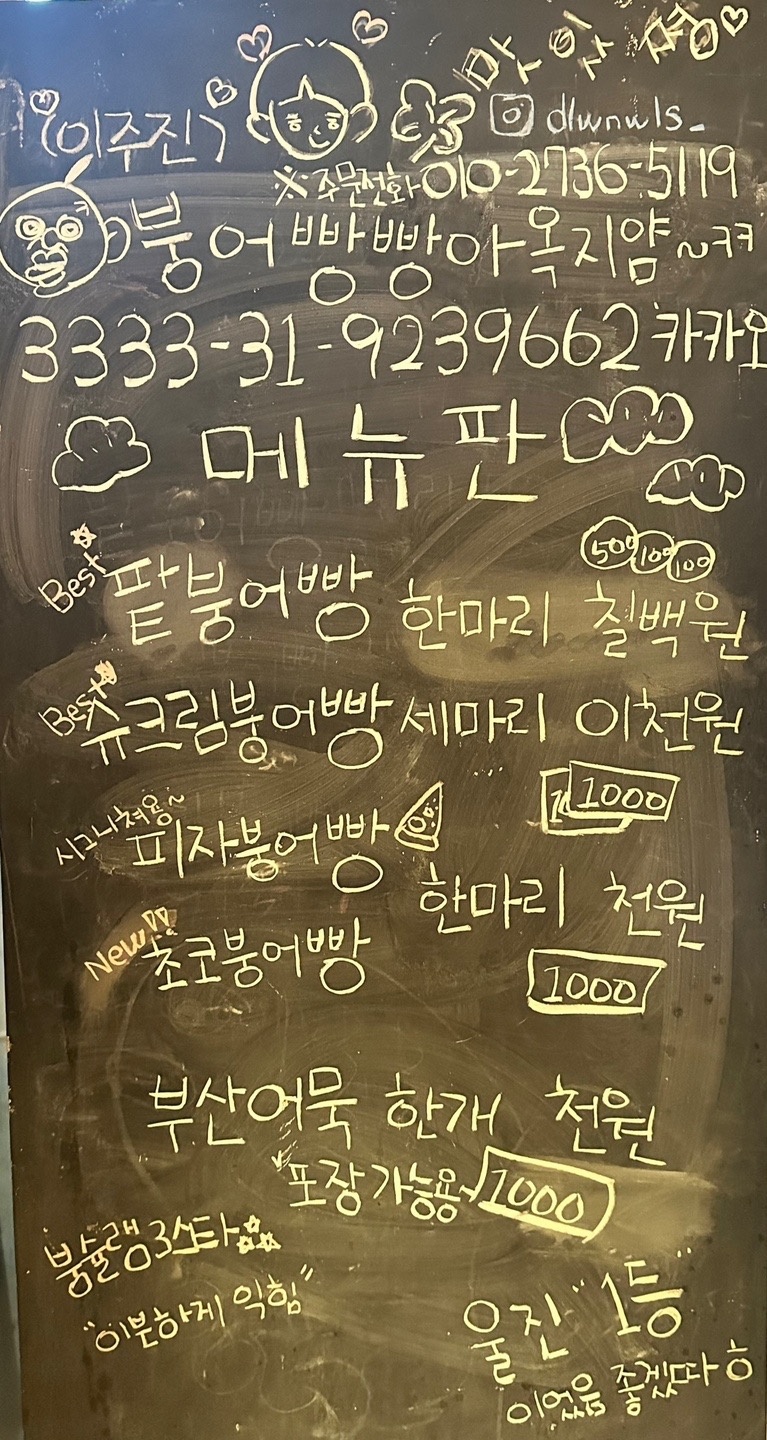 맛이쪙
(이주진)
dlwnwls_
※주문전화 010-2736-5119
붕어빵빵아옥지얌~ㅋㅋ
3333-31-9239662 카카오
메뉴판
500 100 100
Best 팥붕어빵 한마리 칠백원
Best 슈크림붕어빵 세마리 이천원
1000
시그니쳐용~
피자붕어빵
한마리 천원
New!! 초코붕어빵
1000
부산어묵 한개 천원
포장가능용~ 1000
붕슐랭3스타
"이븐하게 익힘"
울진 "1등"
이었음 좋겠따ㅎ